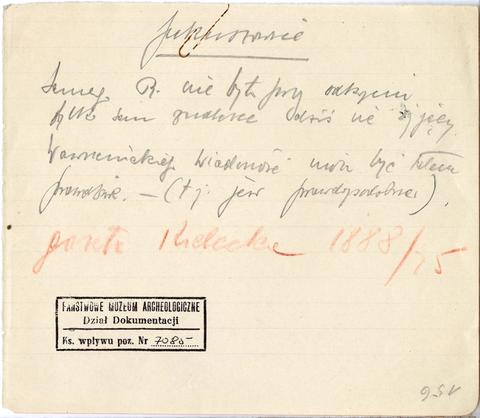 nie był przy odkryciu
tylko sam znalazca dziś nie żyjący.
Wawrzenieckiego wiadomość może być
prawdziwa. — (tj. jest prawdopodobna).
gazeta Kielecka 1888/75
PAŃSTWOWE MUZEUM ARCHEOLOGICZNE
Dział Dokumentacji
Ks. wpływu poz. Nr 7085
156